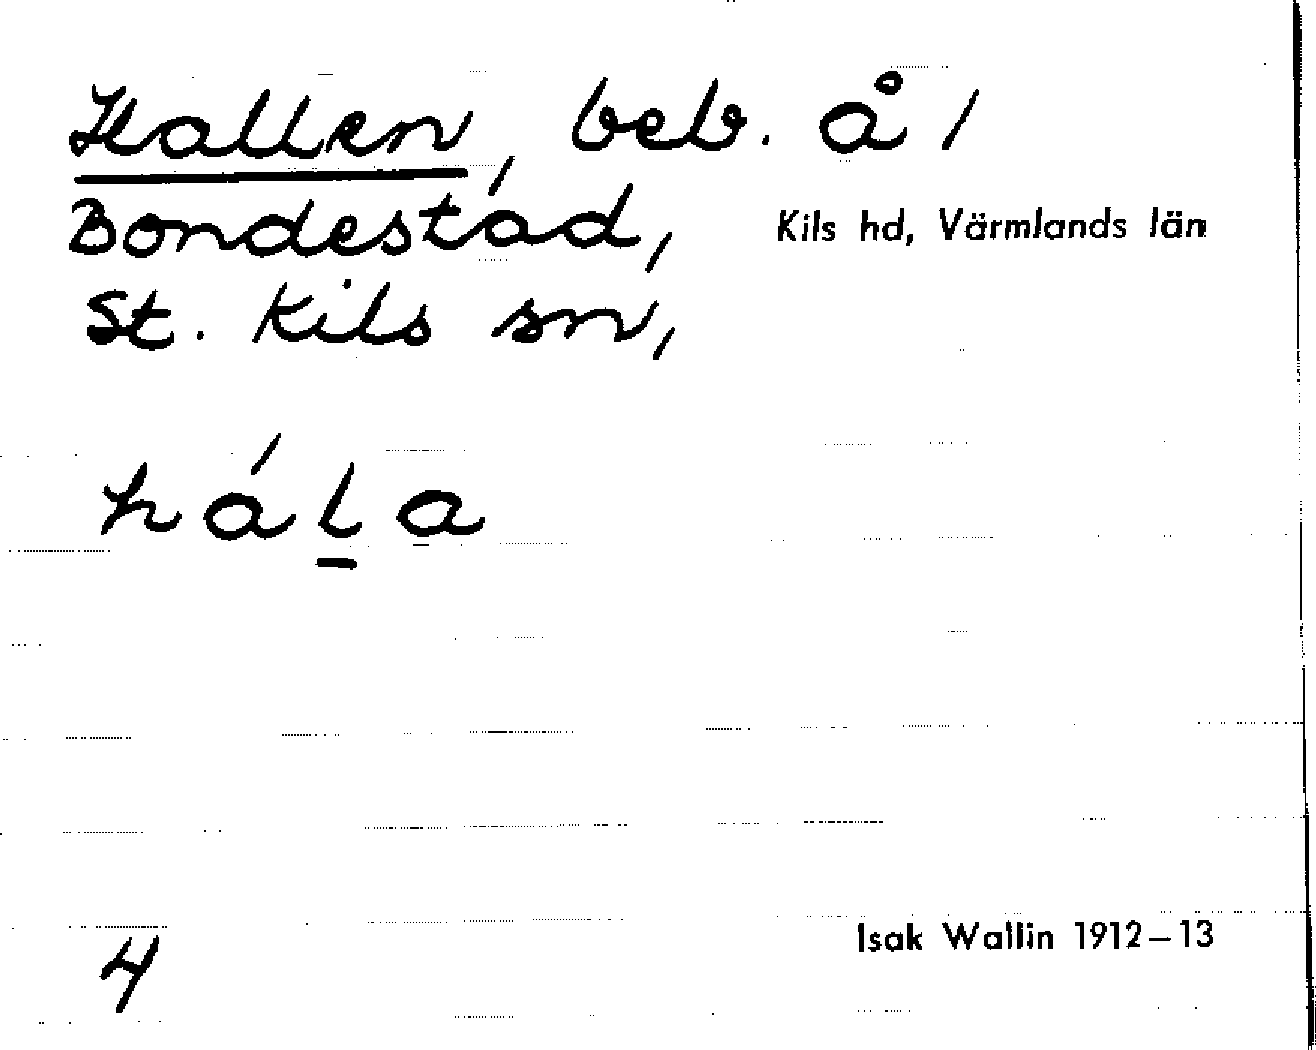 Hallen, beb. å /
Bondestad,
Kils hd, Värmlands län
St. Kils sn,
háḻa
4
Isak Wallin 1912–13